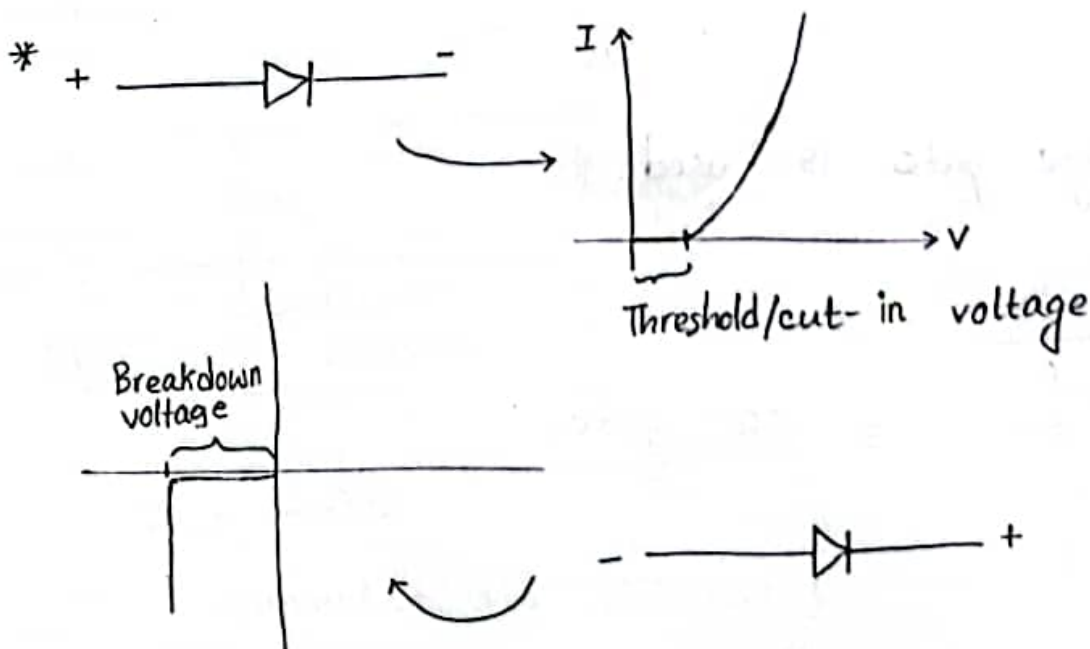 * + -
I
V
Threshold/cut-in voltage
Breakdown
voltage
- +